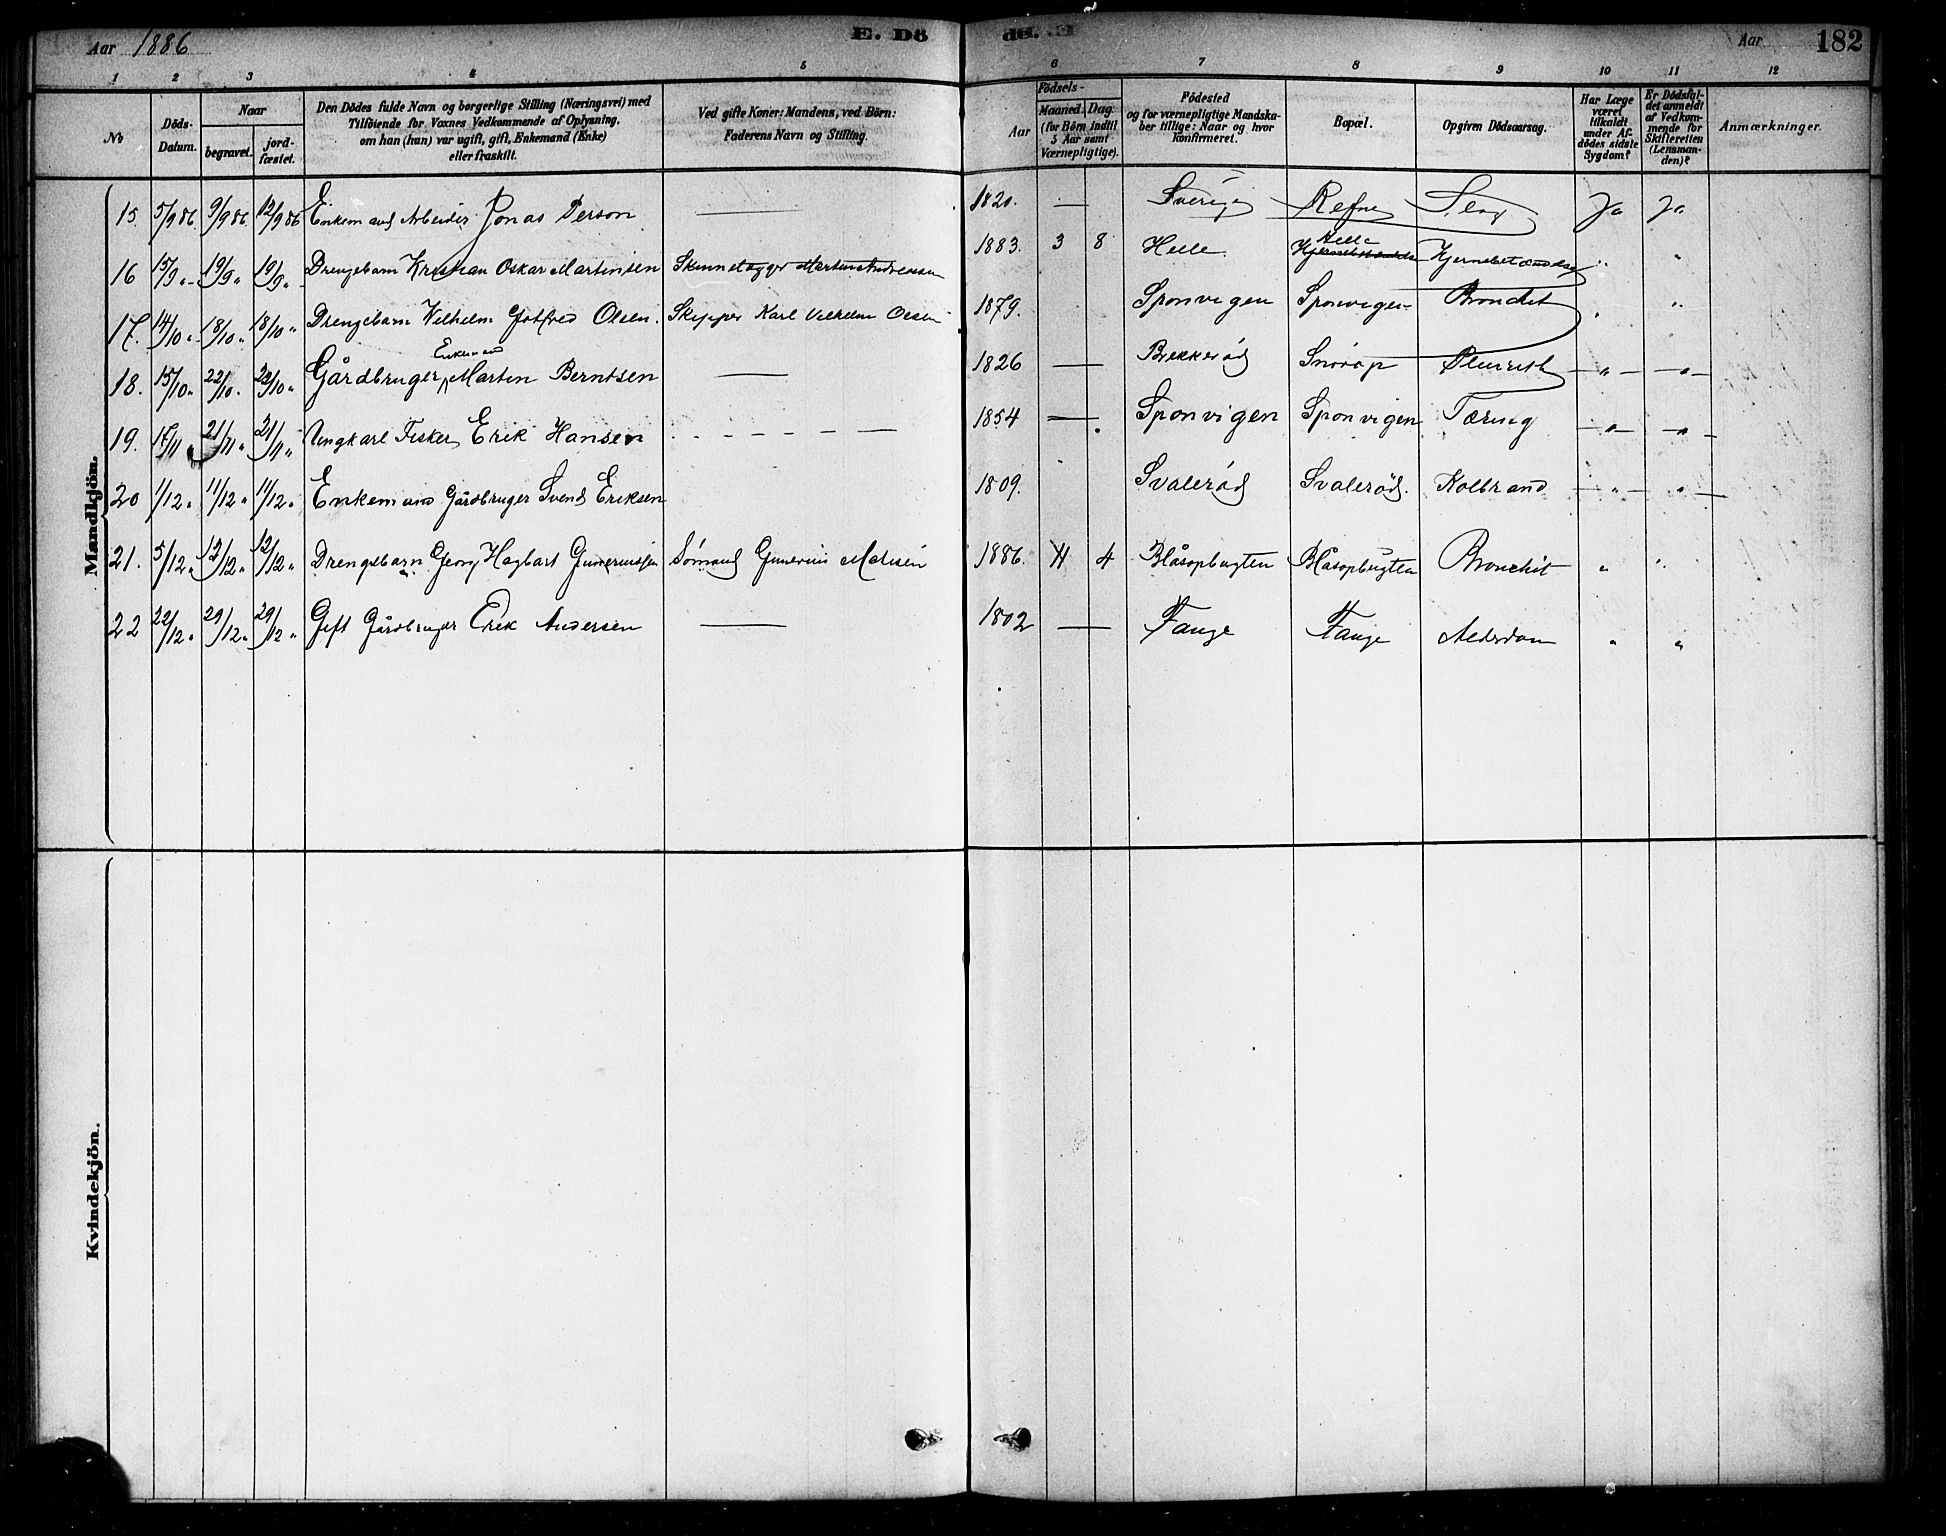 Aar 1886 E. Dö de. Aar 182
1 2 3 4 5 6 7 8 9 10 11 12
No
Döds-Datum.
Naar
begravet.
jord-fæstet.
Den Dödes fulde Navn og borgerlige Stilling (Næringsvei) med
Tilföiende for Voxnes Vedkommende af Oplysning,
om han (hun) var ugift, gift, Enkemand (Enke)
eller fraskilt.
Ved gifte Koner: Mandens, ved Börn:
Faderens Navn og Stilling.
Födsels-
Aar
Maaned. Dag
(for Börn indtil
5 Aar samt
Værnepligtige).
Födested
og for værnepligtige Mandska-
ber tillige: Naar og hvor
konfirmeret.
Bopæl.
Opgiven Dödsaarsag.
Har Læge
været
tilkaldt
under Af-
dödes sidste
Sygdom?
Er Dödsfal-
det anmeldt
af Vedkom-
mende for
Skifteretten
(Lensman-
den)?
Anmærkninger.
Mandkjön.
15. 5/9 86 9/9 86 12/9 86 Enkemand Arbeider Jonas Person — 1820. — Sverige Refne Slag Ja Ja
16 15/9 „ 19/9 „ 19/9 „ Drengebarn Kristian Oskar Martinsen 1883. 3 8 Helle Helle Kjernebetændelse „ „
17. 14/10 „ 18/10 „ 18/10 „ Drengebarn Vilhelm Gotfred Olsen. Skipper Karl Vilhelm Olsen 1879. Sponvigen Sponvigen Bronchit „ „
18. 15/10 „ 22/10 „ 22/10 „ Gårdbruger Enkemand Martin Berntsen — 1826 — Brekkerød Snørøp Pleurith „ „
19. 17/11 „ 21/11 „ 21/11 „ Ungkarl Fisker Erik Hansen — 1854 — Sponvigen Sponvigen Tæring „ „
20 1/12 „ 11/12 „ 11/12 „ Enkemand Gårdbruger Svend Eriksen 1809. Svalerød Svalerød. Kolbrand „ „
21. 5/12 „ 12/12 „ 12/12 „ Drengebarn Georg Hagbart Gunerius­sen Sømand Gunerius 1886. 11 4 Blåsopbugten Blåsopbugten Bronchit „ „
22 22/12 „ 29/12 „ 29/12 „ Gift Gårdbruger Erik Andersen — 1802 — Fange Fange Alderdom „ „
Kvindekjön.